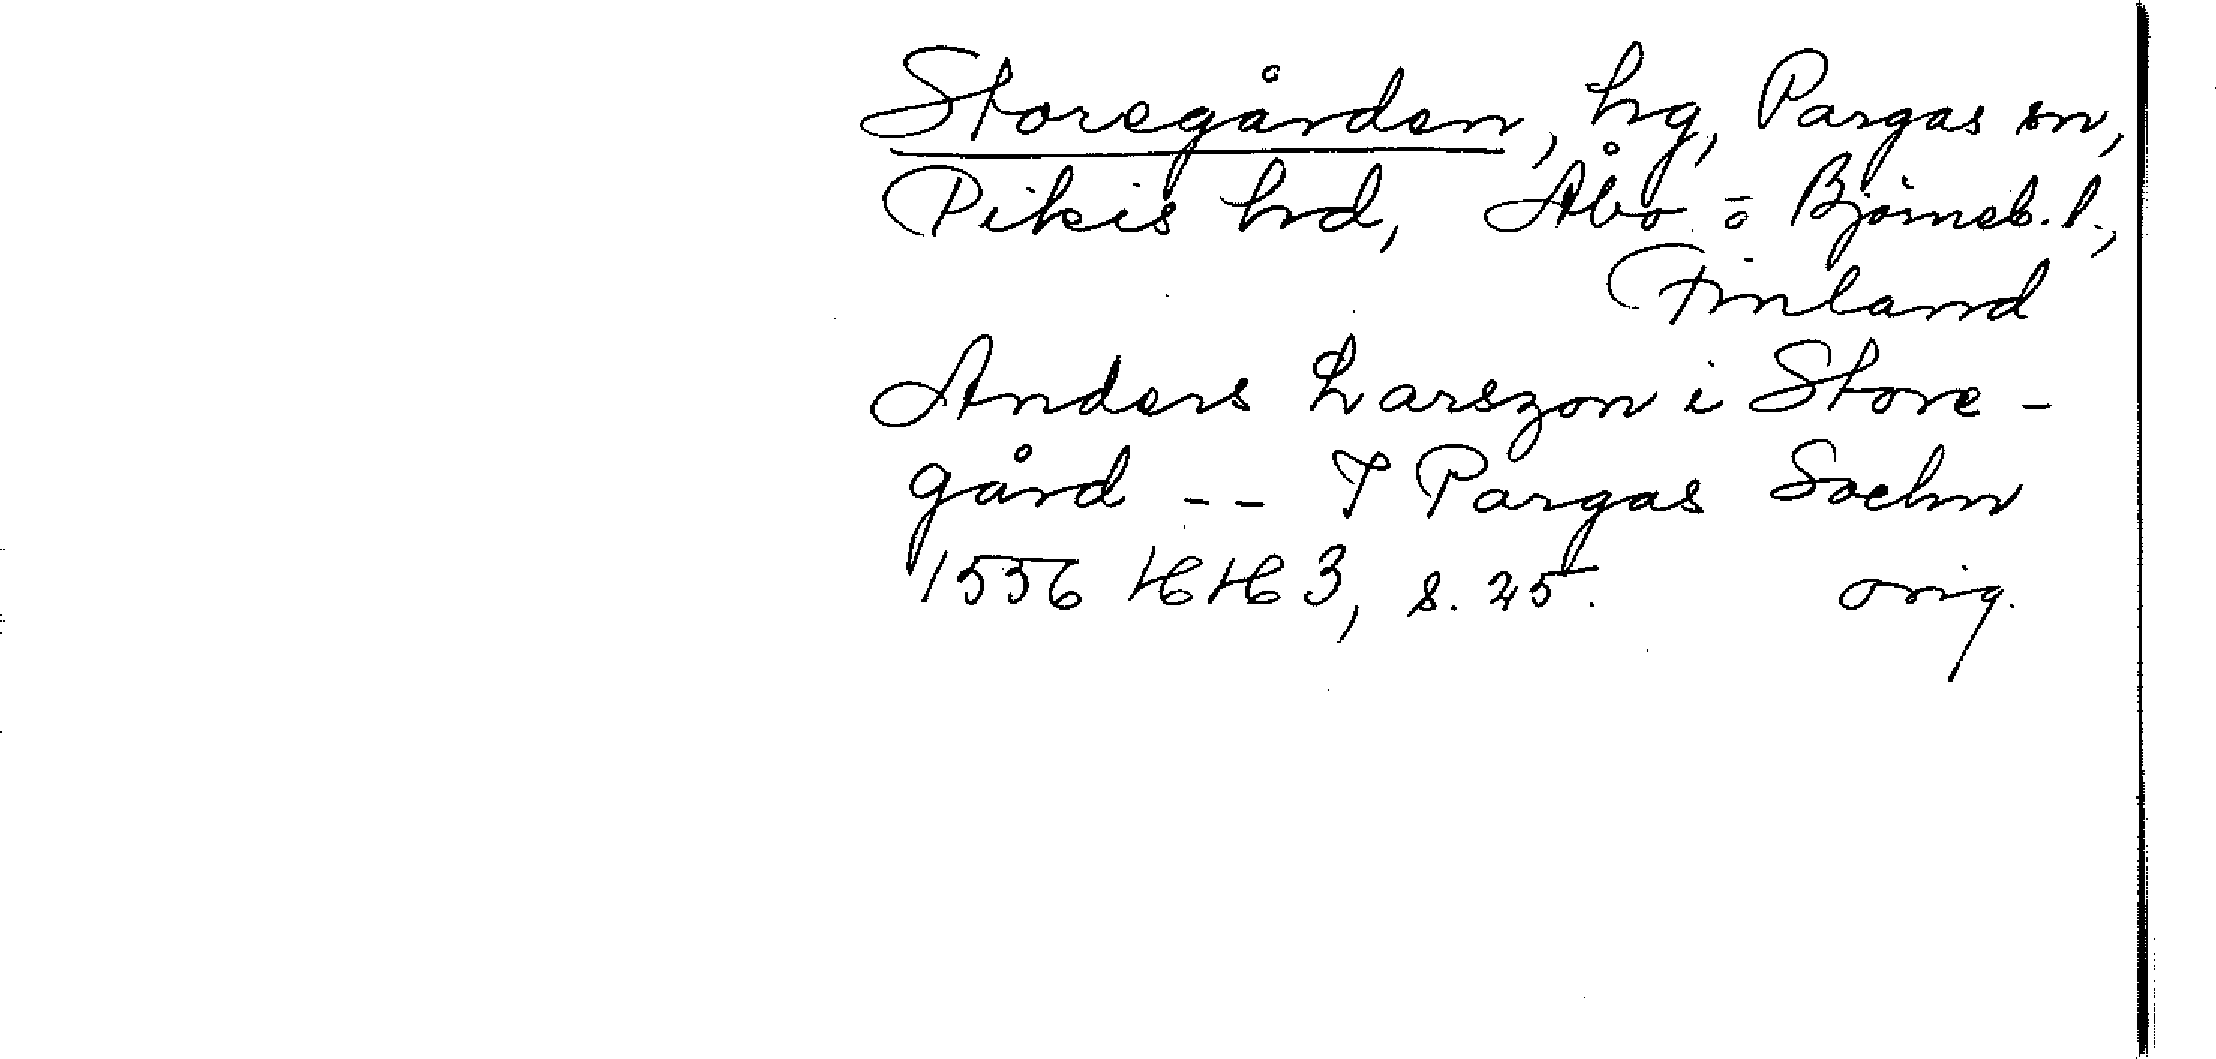 Storegården, hg, Pargas sn,
Pikis hrd, Åbo o Björneb. l.,
Finland
Anders Larszon i Store-
gård -- I Pargas Sochn
1556 HH 3, s. 25. orig.